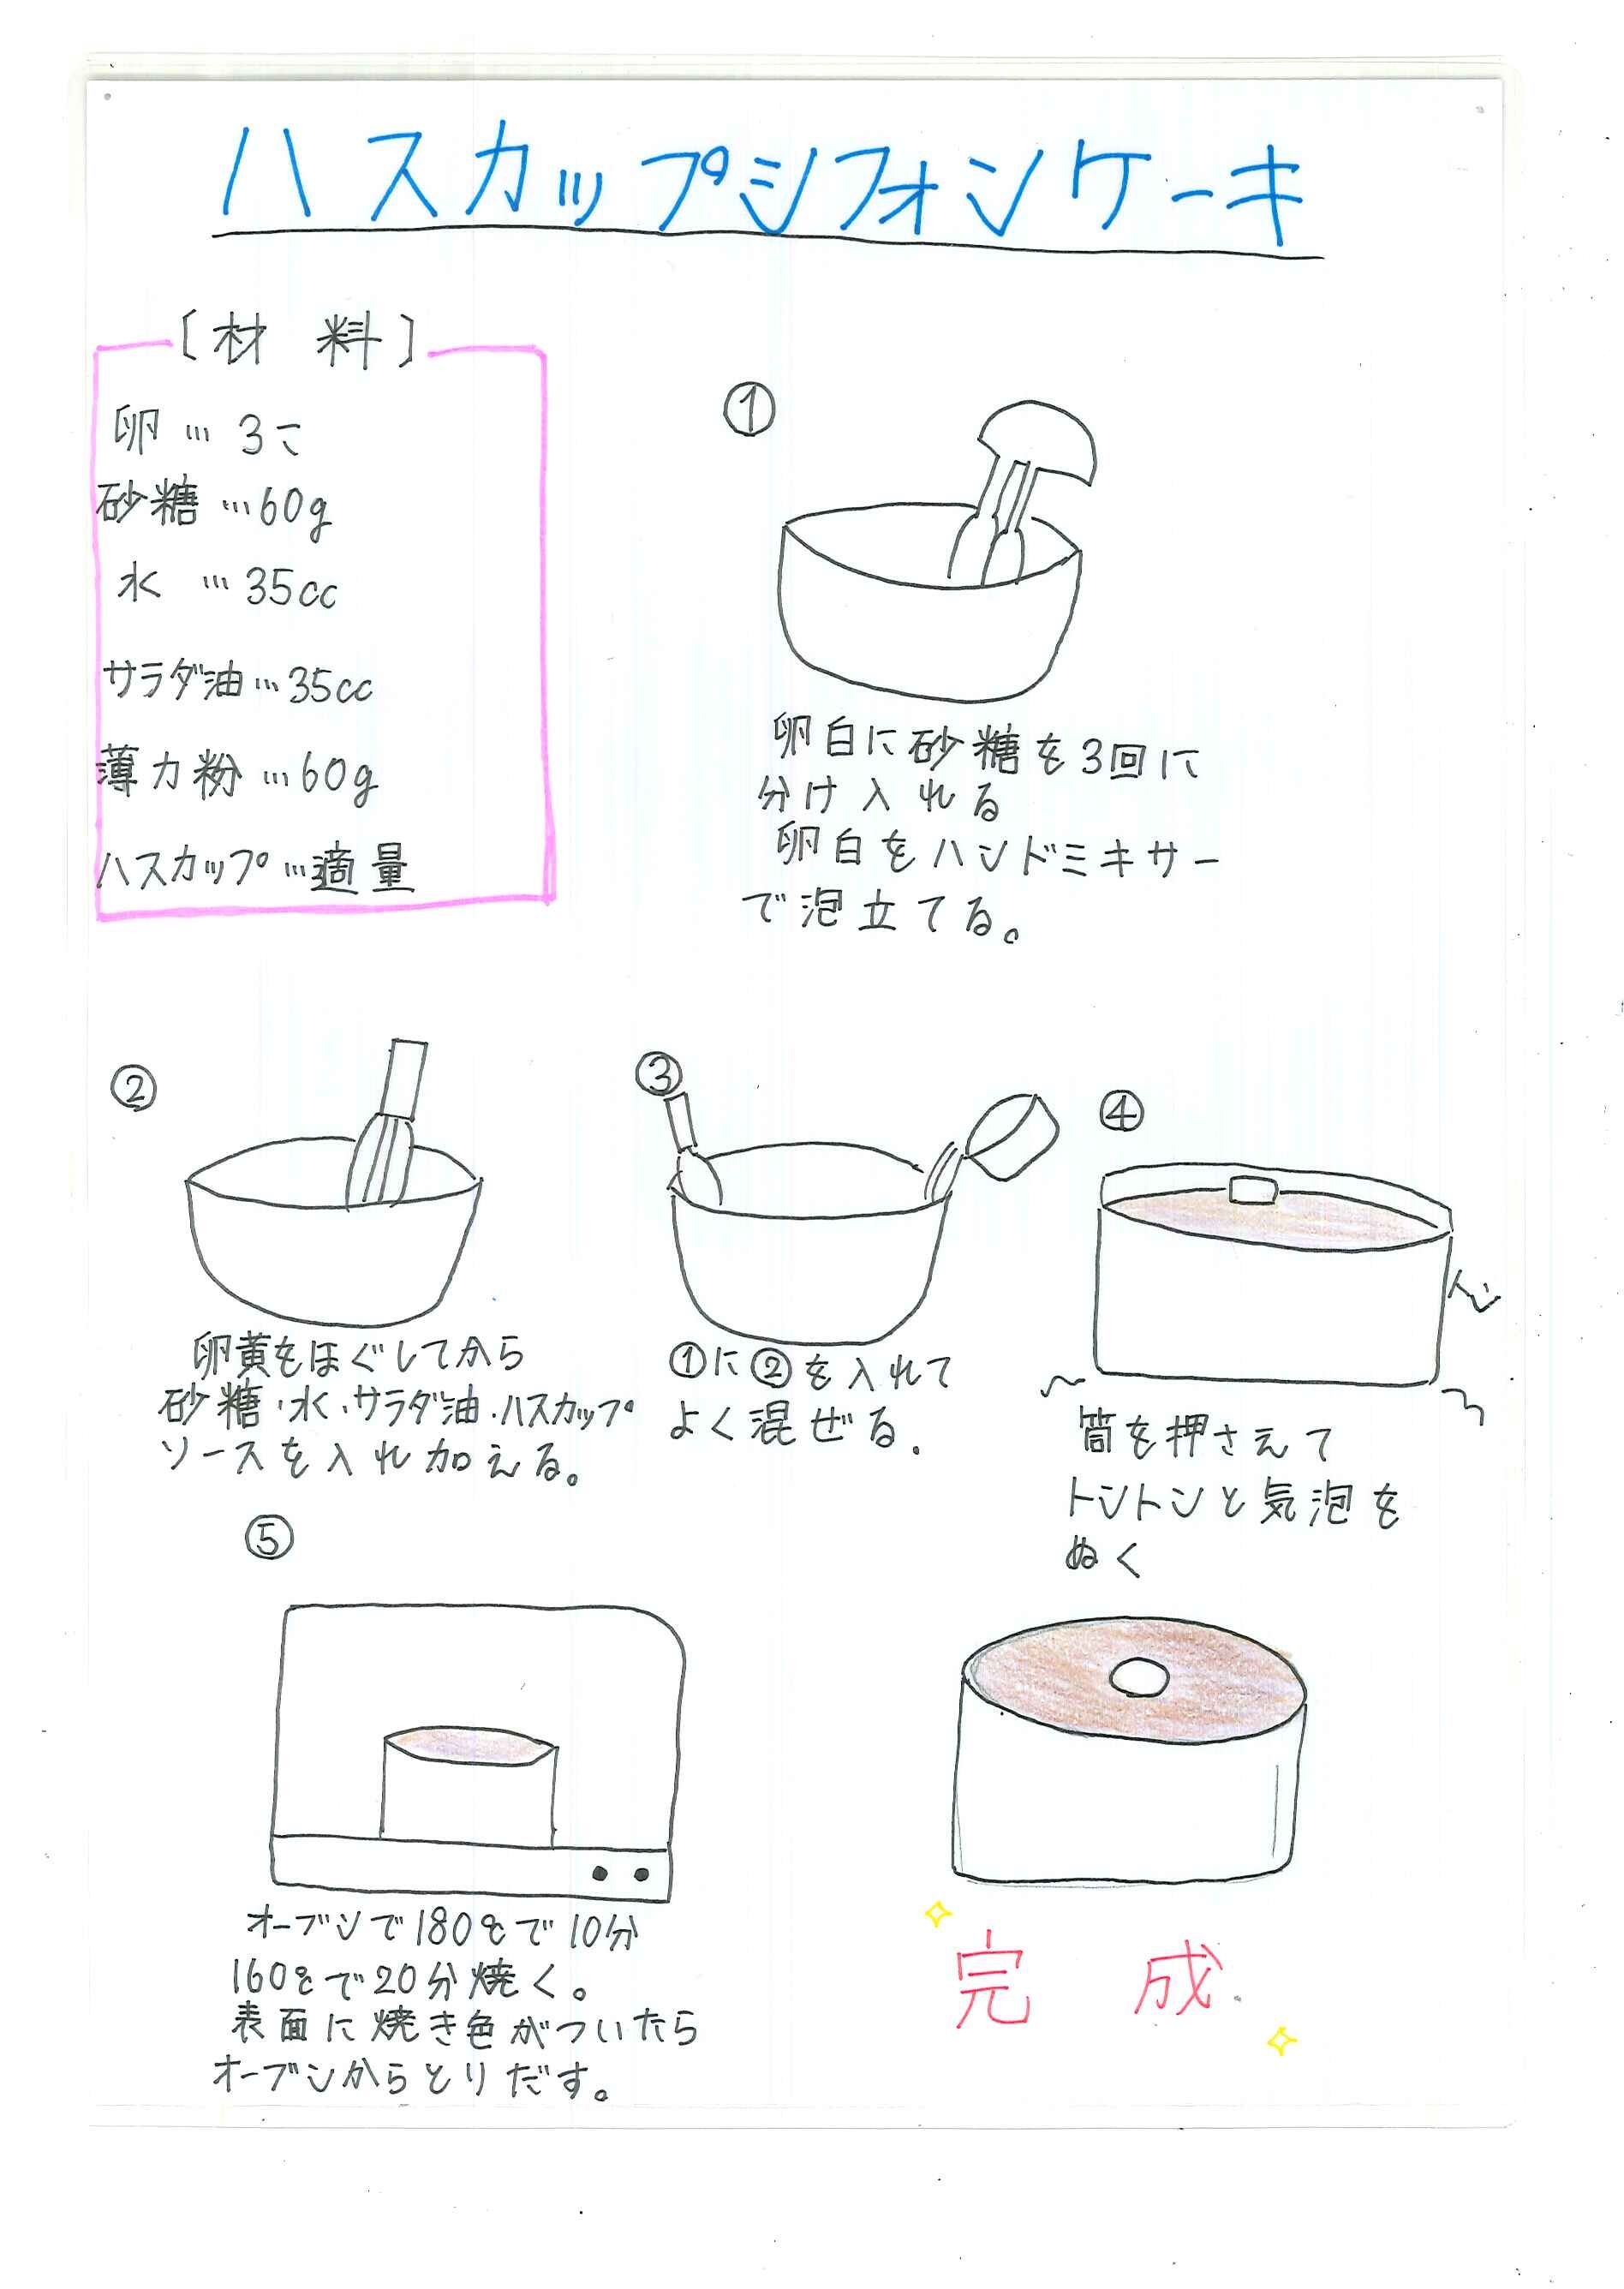 ハスカップシフォンケーキ
〔材 料〕
卵…3こ
砂糖…60g
水…35cc
サラダ油…35cc
薄力粉…60g
ハスカップ…適量
①
卵白に砂糖を3回に
分け入れる
卵白をハンドミキサー
で泡立てる。
②
卵黄をほぐしてから
砂糖・水・サラダ油・ハスカップ
ソースを入れ加える。
③
①に②を入れて
よく混ぜる.
④
トン
筒を押さえて
トントンと気泡を
ぬく
⑤
オーブンで180℃で10分
160℃で20分焼く。
表面に焼き色がついたら
オーブンからとりだす。
完 成